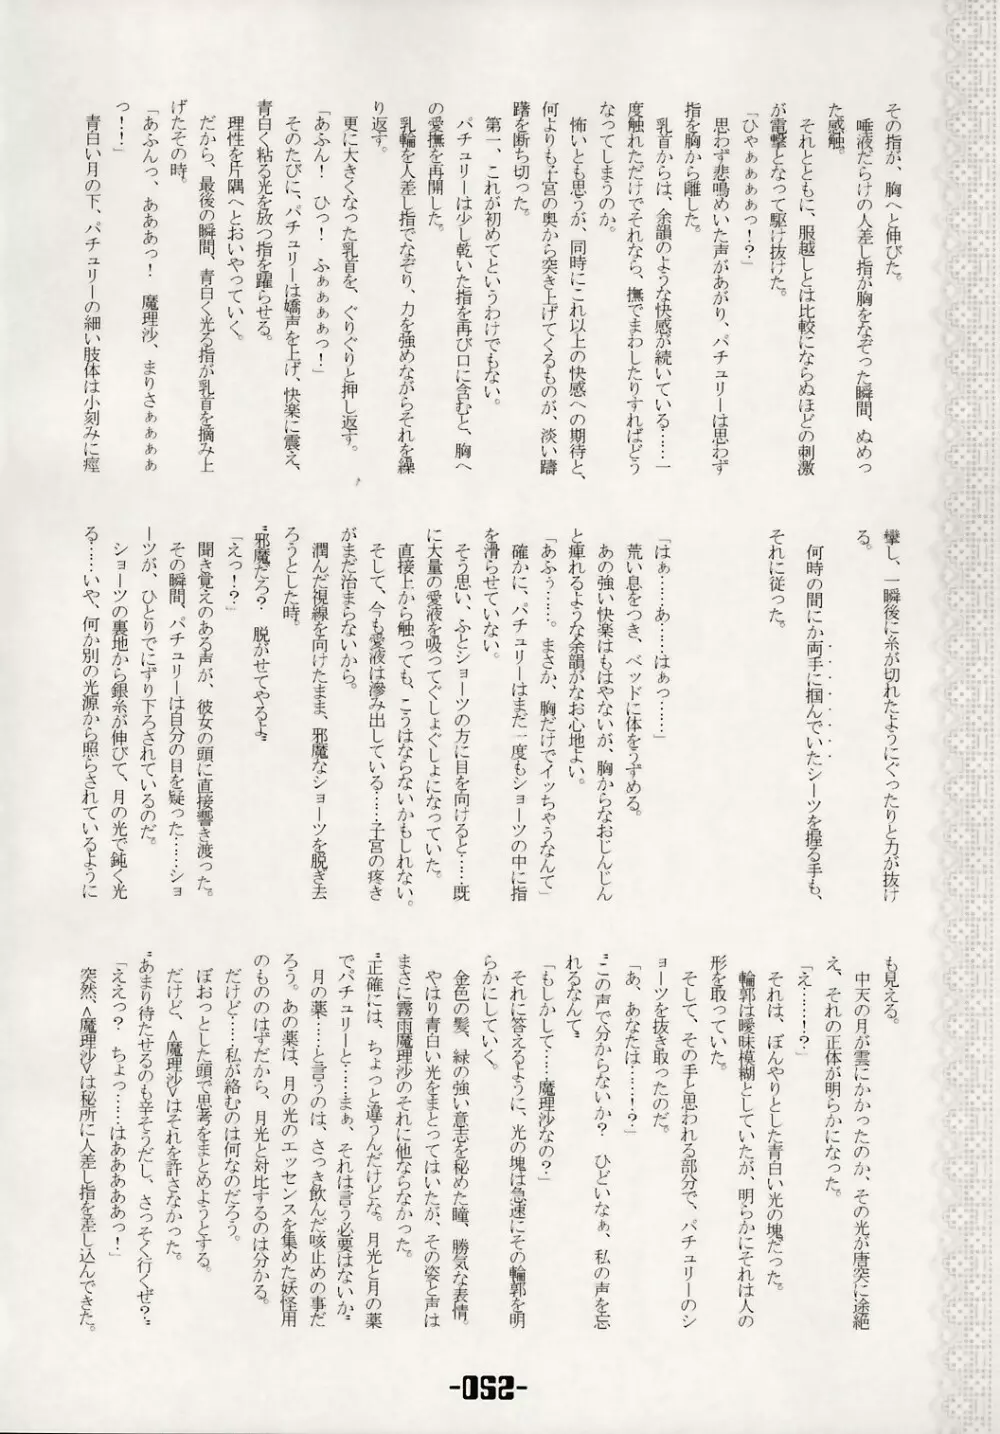 その指が、胸へと伸びた。
唾液だらけの人差し指が胸をなぞった瞬間、ぬめっ
た感触。
それとともに、服越しとは比較にならぬほどの刺激
が電撃となって駆け抜けた。
「ひゃぁぁぁぁっ！？」
思わず悲鳴めいた声があがり、パチュリーは思わず
指を胸から離した。
乳首からは、余韻のような快感が続いている……一
度触れただけでそれなら、撫でまわしたりすればどう
なってしまうのか。
怖いとも思うが、同時にこれ以上の快感への期待と、
何よりも子宮の奥から突き上げてくるものが、淡い躊
躇を断ち切った。
第一、これが初めてというわけでもない。
パチュリーは少し乾いた指を再び口に含むと、胸へ
の愛撫を再開した。
乳輪を人差し指でなぞり、力を強めながらそれを繰
り返す。
更に大きくなった乳首を、ぐりぐりと押し返す。
「あふん！　ひっ！　ふぁぁぁぁっ！」
そのたびに、パチュリーは嬌声を上げ、快楽に震え、
青白く粘る光を放つ指を躍らせる。
理性を片隅へとおいやっていく。
だから、最後の瞬間、青白く光る指が乳首を摘み上
げたその時。
「あふんっ、あああっ！　魔理沙、まりさぁぁぁぁ
っ！…！」
青白い月の下、パチュリーの細い肢体は小刻みに痙
攣し、一瞬後に糸が切れたようにぐったりと力が抜け
る。
何時の間にか両手に掴んでいたシーツを握る手も、
それに従った。
「はぁ……あ……はぁっ……」
荒い息をつき、ベッドに体をうずめる。
あの強い快楽はもはやないが、胸からなおじんじん
と痺れるような余韻がなお心地よい。
「あふぅ……。まさか、胸だけでイッちゃうなんて」
確かに、パチュリーはまだ一度もショーツの中に指
を滑らせていない。
そう思い、ふとショーツの方に目を向けると……既
に大量の愛液を吸ってぐしょぐしょになっていた。
直接上から触っても、こうはならないかもしれない。
そして、今も愛液は滲み出している……子宮の疼き
がまだ治まらないから。
潤んだ視線を向けたまま、邪魔なショーツを脱ぎ去
ろうとした時。
〝邪魔だろ？　脱がせてやるよ〟
「えっ！？」
聞き覚えのある声が、彼女の頭に直接響き渡った。
その瞬間、パチュリーは自分の目を疑った……ショ
ーツが、ひとりでにずり下ろされているのだ。
ショーツの裏地から銀糸が伸びて、月の光で鈍く光
る……いや、何か別の光源から照らされているように
も見える。
中天の月が雲にかかったのか、その光が唐突に途絶
え、それの正体が明らかになった。
「え……！？」
それは、ぼんやりとした青白い光の塊だった。
輪郭は曖昧模糊としていたが、明らかにそれは人の
形を取っていた。
そして、その手と思われる部分で、パチュリーのシ
ョーツを抜き取ったのだ。
「あ、あなたは……！？」
〝この声で分からないか？　ひどいなぁ、私の声を忘
れるなんて〟
「もしかして……魔理沙なの？」
それに答えるように、光の塊は急速にその輪郭を明
らかにしていく。
金色の髪、緑の強い意志を秘めた瞳、勝気な表情。
やはり青白い光をまとってはいたが、その姿と声は
まさに霧雨魔理沙のそれに他ならなかった。
〝正確には、ちょっと違うんだけどな。月光と月の薬
でパチュリーと……まぁ、それは言う必要はないか〟
月の薬……と言うのは、さっき飲んだ咳止めの事だ
ろう。あの薬は、月の光のエッセンスを集めた妖怪用
のもののはずだから、月光と対比するのは分かる。
だけど……私が絡むのは何なのだろう。
ぼおっとした頭で思考をまとめようとする。
だけど、<魔理沙>はそれを許さなかった。
〝あまり待たせるのも辛そうだし、さっそく行くぜ？〟
「ええっ？　ちょっ……はああああっ！」
突然、<魔理沙>は秘所に人差し指を差し込んできた。
-052-